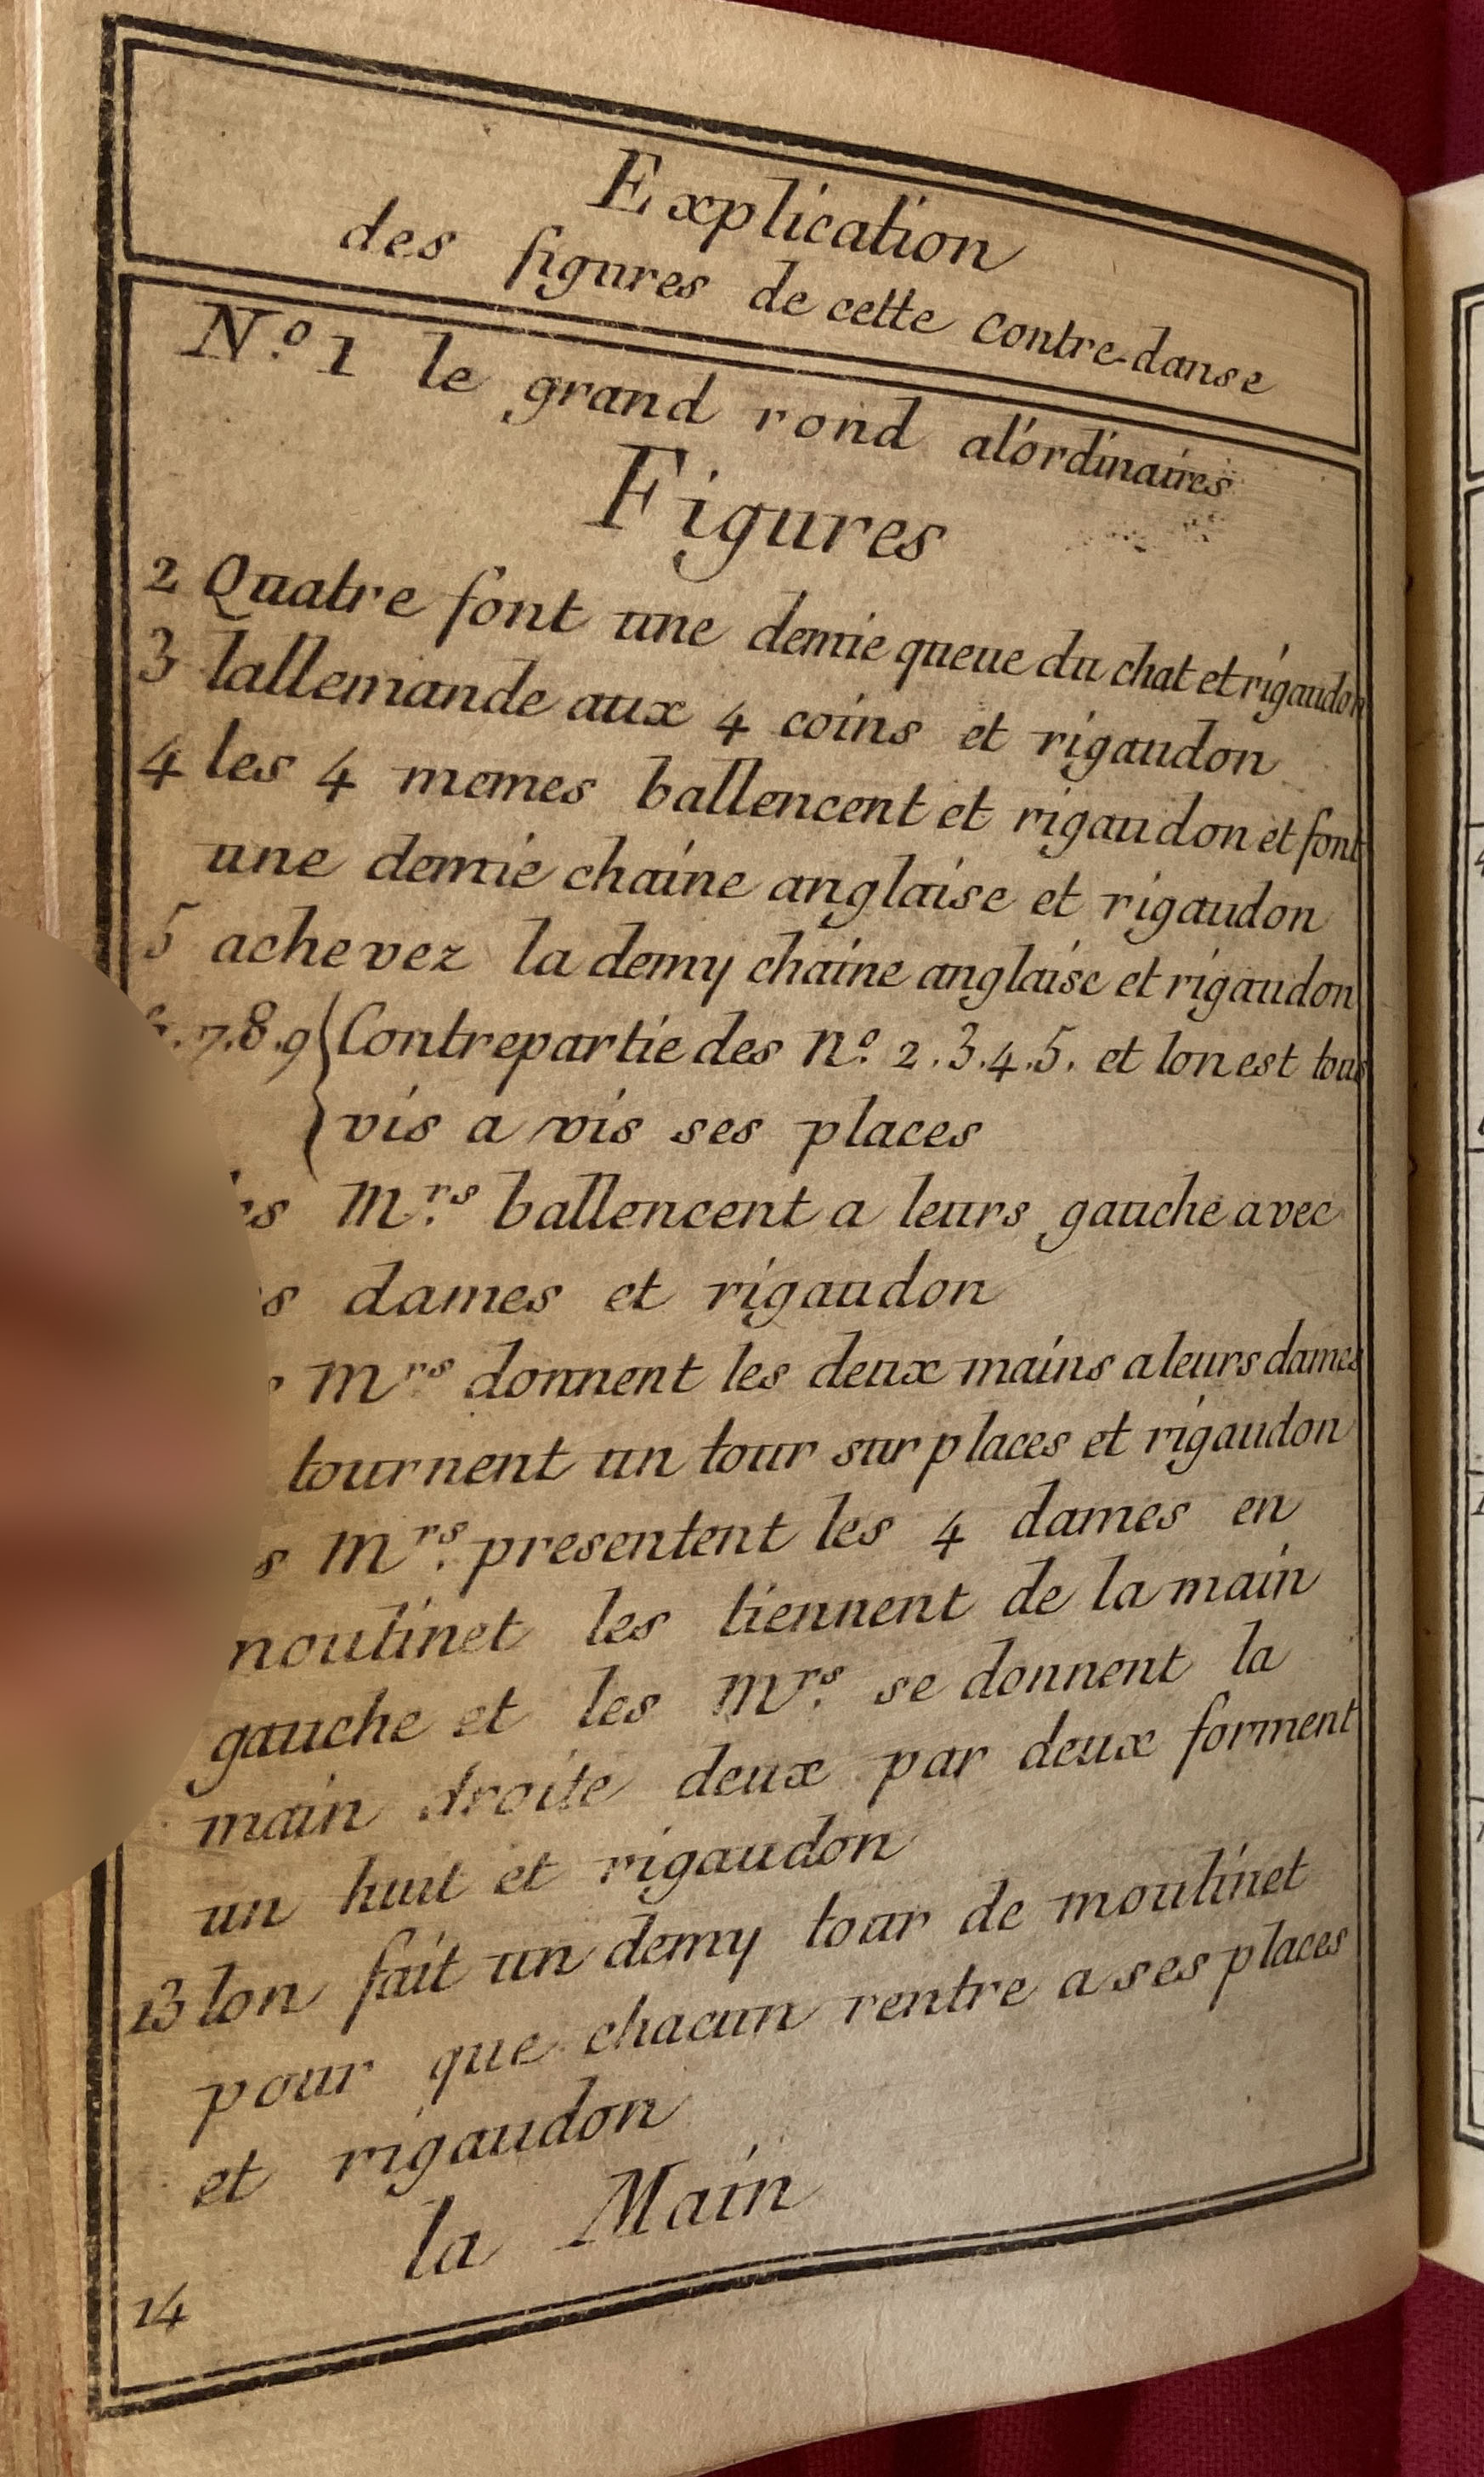 Explication
des figures de cette contre-danse
N.º 1 le grand rond al'ordinaires
Figures
2 Quatre font une demie queue du chat et rigaudon
3 lallemande aux 4 coins et rigaudon
4 les 4 memes ballencent et rigaudon et font
une demie chaine anglaise et rigaudon
5 achevez la demy chaine anglaise et rigaudon
.7.8.9 Contrepartie des Nº 2.3.4.5. et lon est tous
vis a vis ses places
M.rs ballencent a leurs gauche avec
dames et rigaudon
Mrs donnent les deux mains a leurs dames
tournent un tour sur places et rigaudon
M.rs presentent les 4 dames en
moulinet les tiennent de la main
gauche et les M.rs se donnent la
main droite deux par deux forment
un huit et rigaudon
13 lon fait un demy tour de moulinet
pour que chacun rentre a ses places
et rigaudon
la Main
14